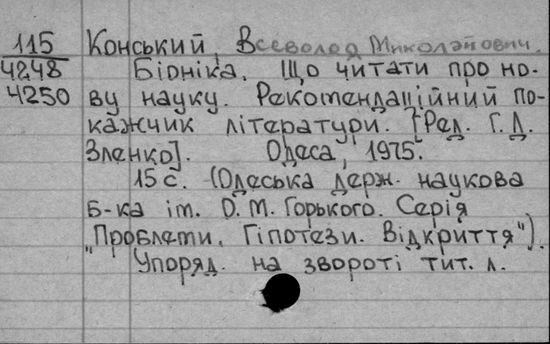 115 Конський, Всеволод Миколайович.
4248 Біоніка. Що читати про но-
4250 ву науку. Рекомендаційний по-
кажчик літератури. [Ред. Г. Д.
Зленко]. Одеса, 1975.
15 с. (Одеська держ. наукова
б-ка ім. О. М. Горького. Серія
"Проблеми. Гіпотези. Відкриття").
Упоряд. на звороті тит. л.